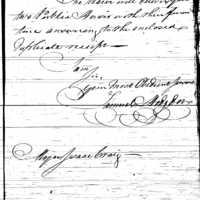 The Water will deliver you
two Public Horses with their furni
ture answering to the enclosed
duplicate receipt —
I am
Sir,
Your Most Obedient Servant
Samuel Hodgdon
Major Isaac Craig